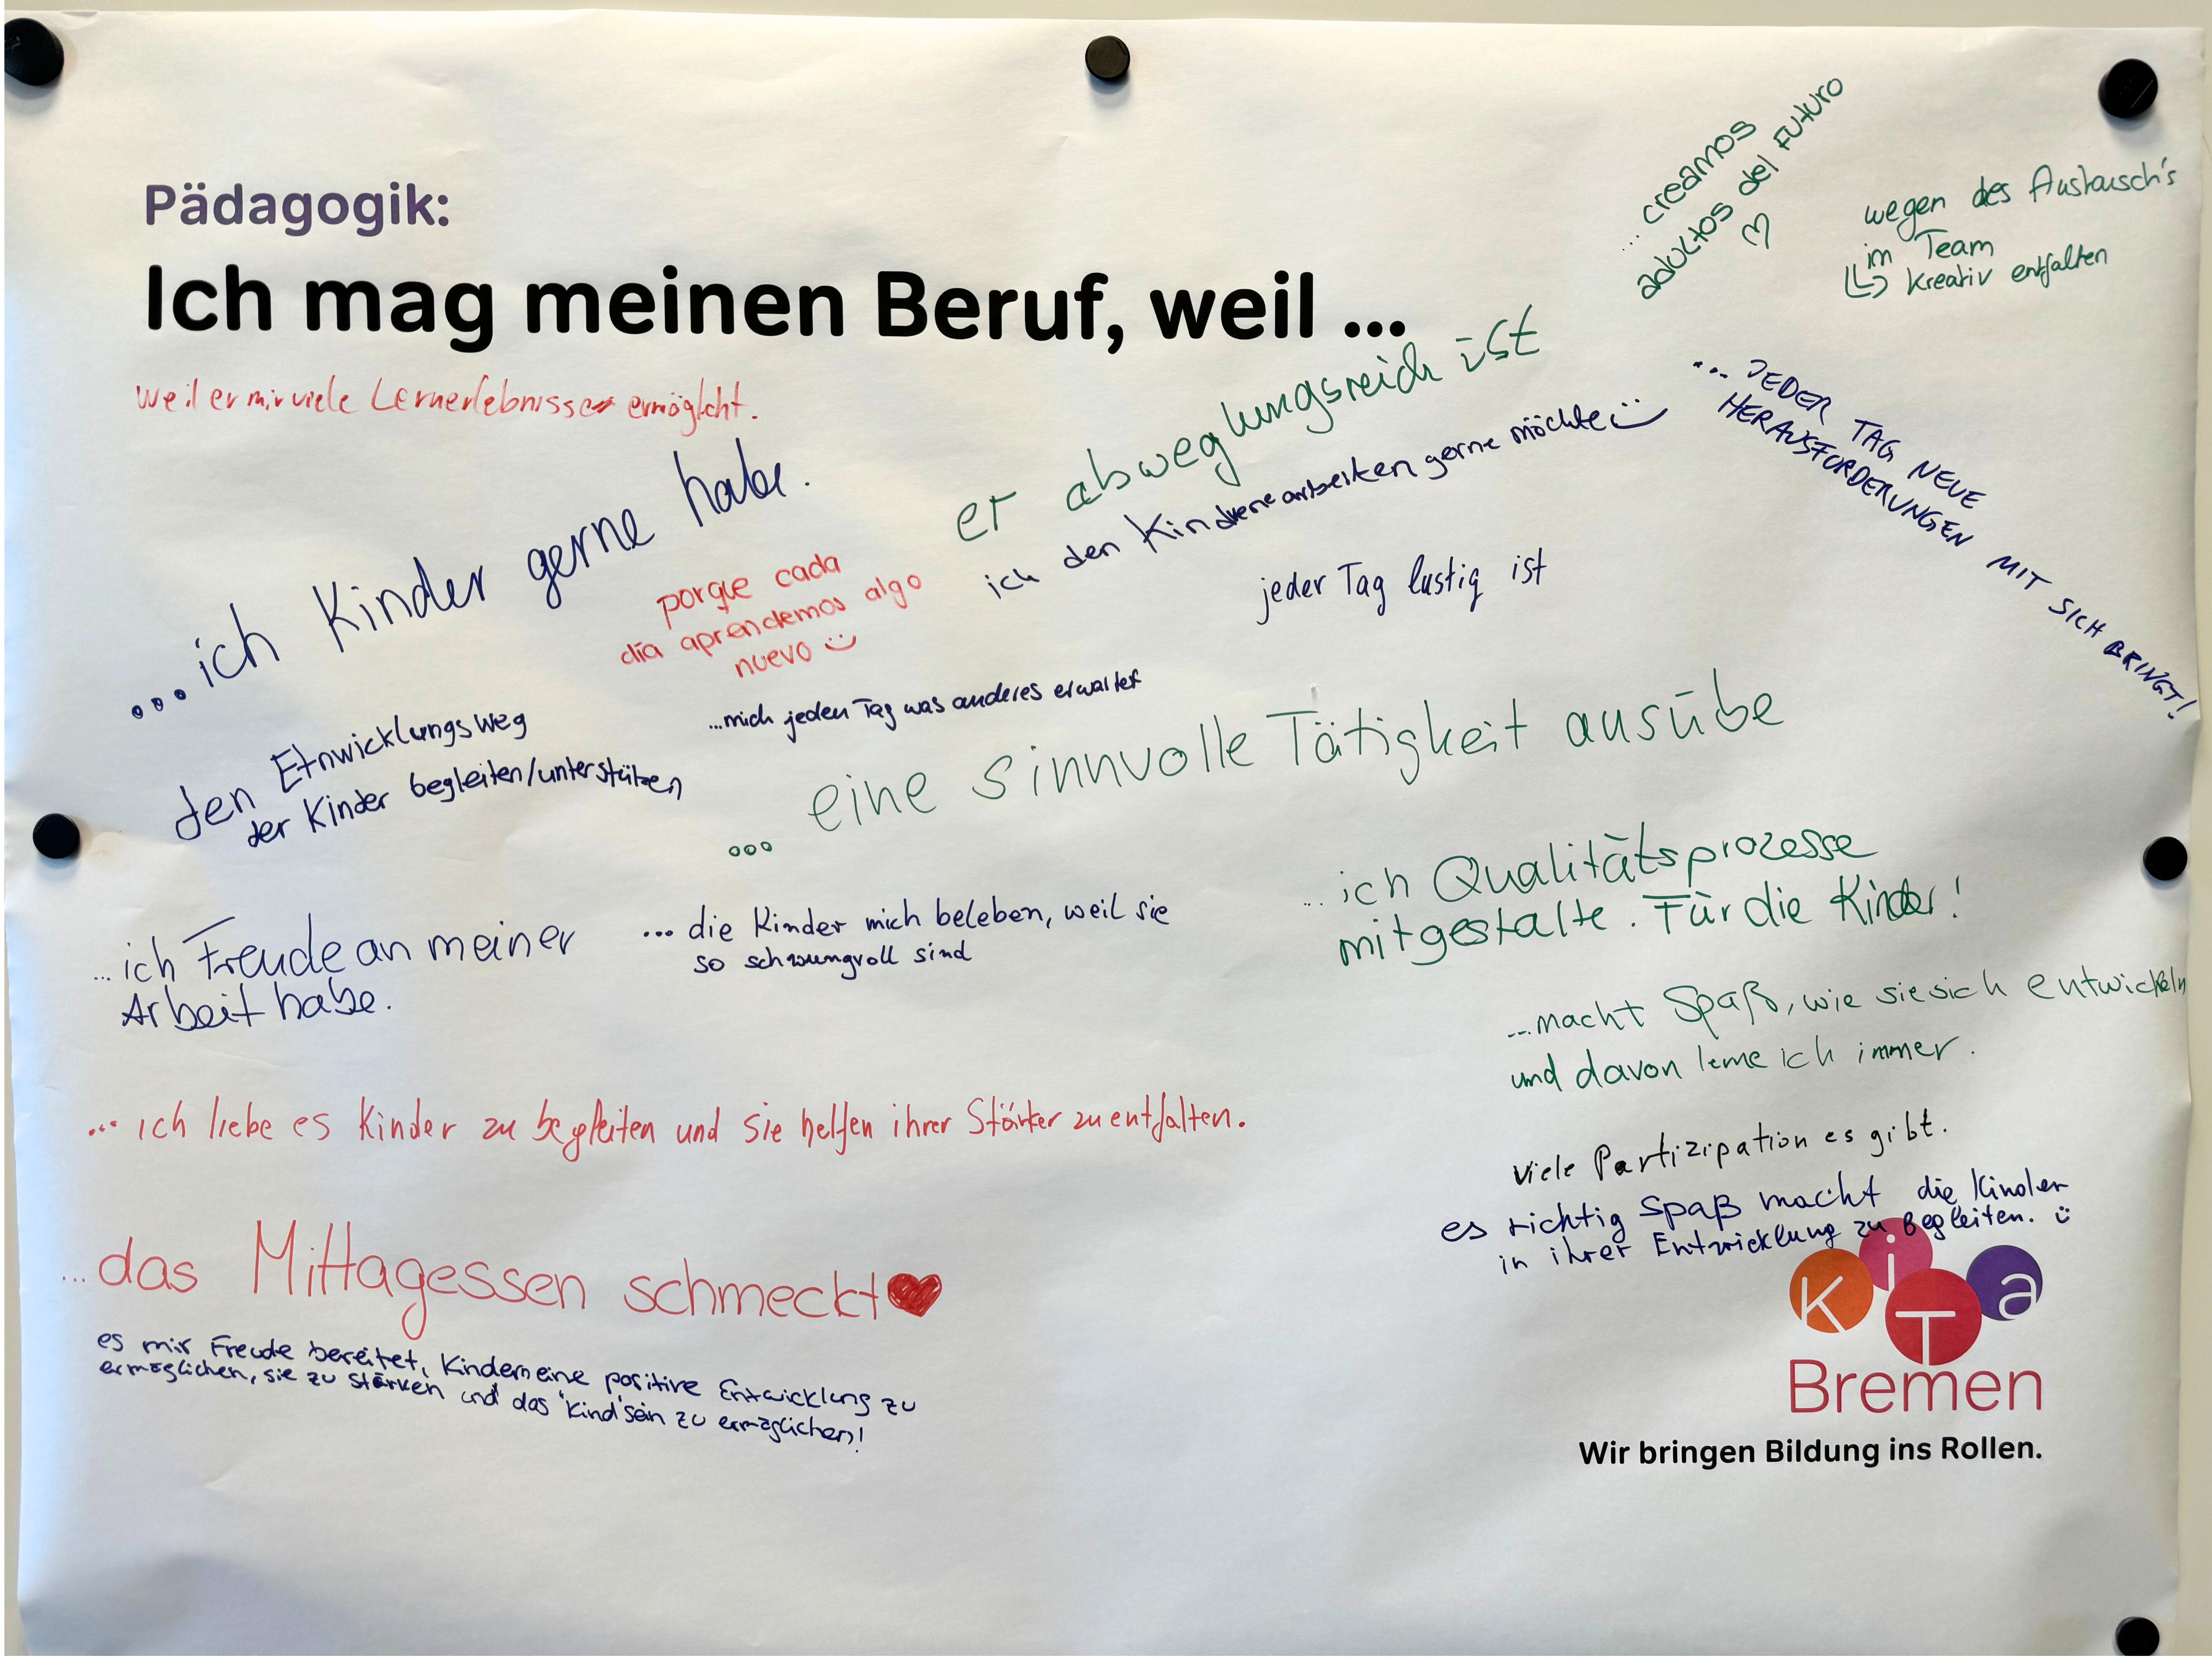 Pädagogik:
Ich mag meinen Beruf, weil ...
... creamos
adultos del Futuro
wegen des Austausch's
im Team
kreativ entfalten
weil er mir viele Lernerlebnisse ermöglicht.
er abweglungsreich ist
... JEDER TAG NEUE
HERAUSFORDERUNGEN MIT SICH BRINGT!
...ich Kinder gerne habe.
ich den arbeiten gerne möchte
porque cada
día aprendemos algo
nuevo
jeder Tag lustig ist
...mich jeden Tag was anderes erwartet
den Etnwicklungsweg
der Kinder begleiten/unterstützen
... eine sinnvolle Tätigkeit ausübe
...ich Qualitätsprozesse
mitgestalte. Für die Kinder!
...ich Freude an meiner
Arbeit habe.
... die Kinder mich beleben, weil sie
so schwungvoll sind
...macht Spaß, wie sie sich entwickeln
und davon lerne ich immer.
... ich liebe es Kinder zu begleiten und sie helfen ihrer Stärker zu entfalten.
viele Partizipation es gibt.
es richtig Spaß macht die Kinder
in ihrer Entwicklung zu Begleiten.
...das Mittagessen schmeckt
es mir Freude bereitet, Kindern eine positive Entwicklung zu
ermöglichen, sie zu stärken und das "Kind"sein zu ermöglichen!
KiTa
Bremen
Wir bringen Bildung ins Rollen.